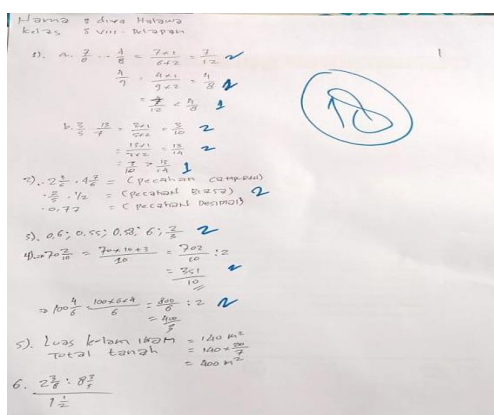 Nama : diva Halawa
Kelas : VIII - Delapan
1). a. 7/6 .. 4/8 = 7×1/6×2 = 7/12 2
4/9 = 4×1/9×2 = 4/8 2
= 7/12 < 4/8 1
b. 3/5 .. 13/7 = 3×1/5×2 = 3/10 2
= 13×1/7×2 = 13/14 2
= 7/10 > 13/14 1
2). 2 3/6 . 4 7/6 = (pecahan campuran)
2/5 . 1/2 = (pecahan Biasa) 2
0,77 = (pecahan Desimal)
3). 0,6; 0,55; 0,58; 6; 2/3 2
4). → 70 2/10 = 70×10+2/10 = 702/10 : 2
= 351/10 2
→ 100 4/6 100×6×4/6 = 800/6 : 2 2
= 400/3
5). Luas kolam ikan = 140 m²
Total tanah = 140 × 20/7
= 400 m²
6. 2 3/8 : 8 3/5
1 1/2
10